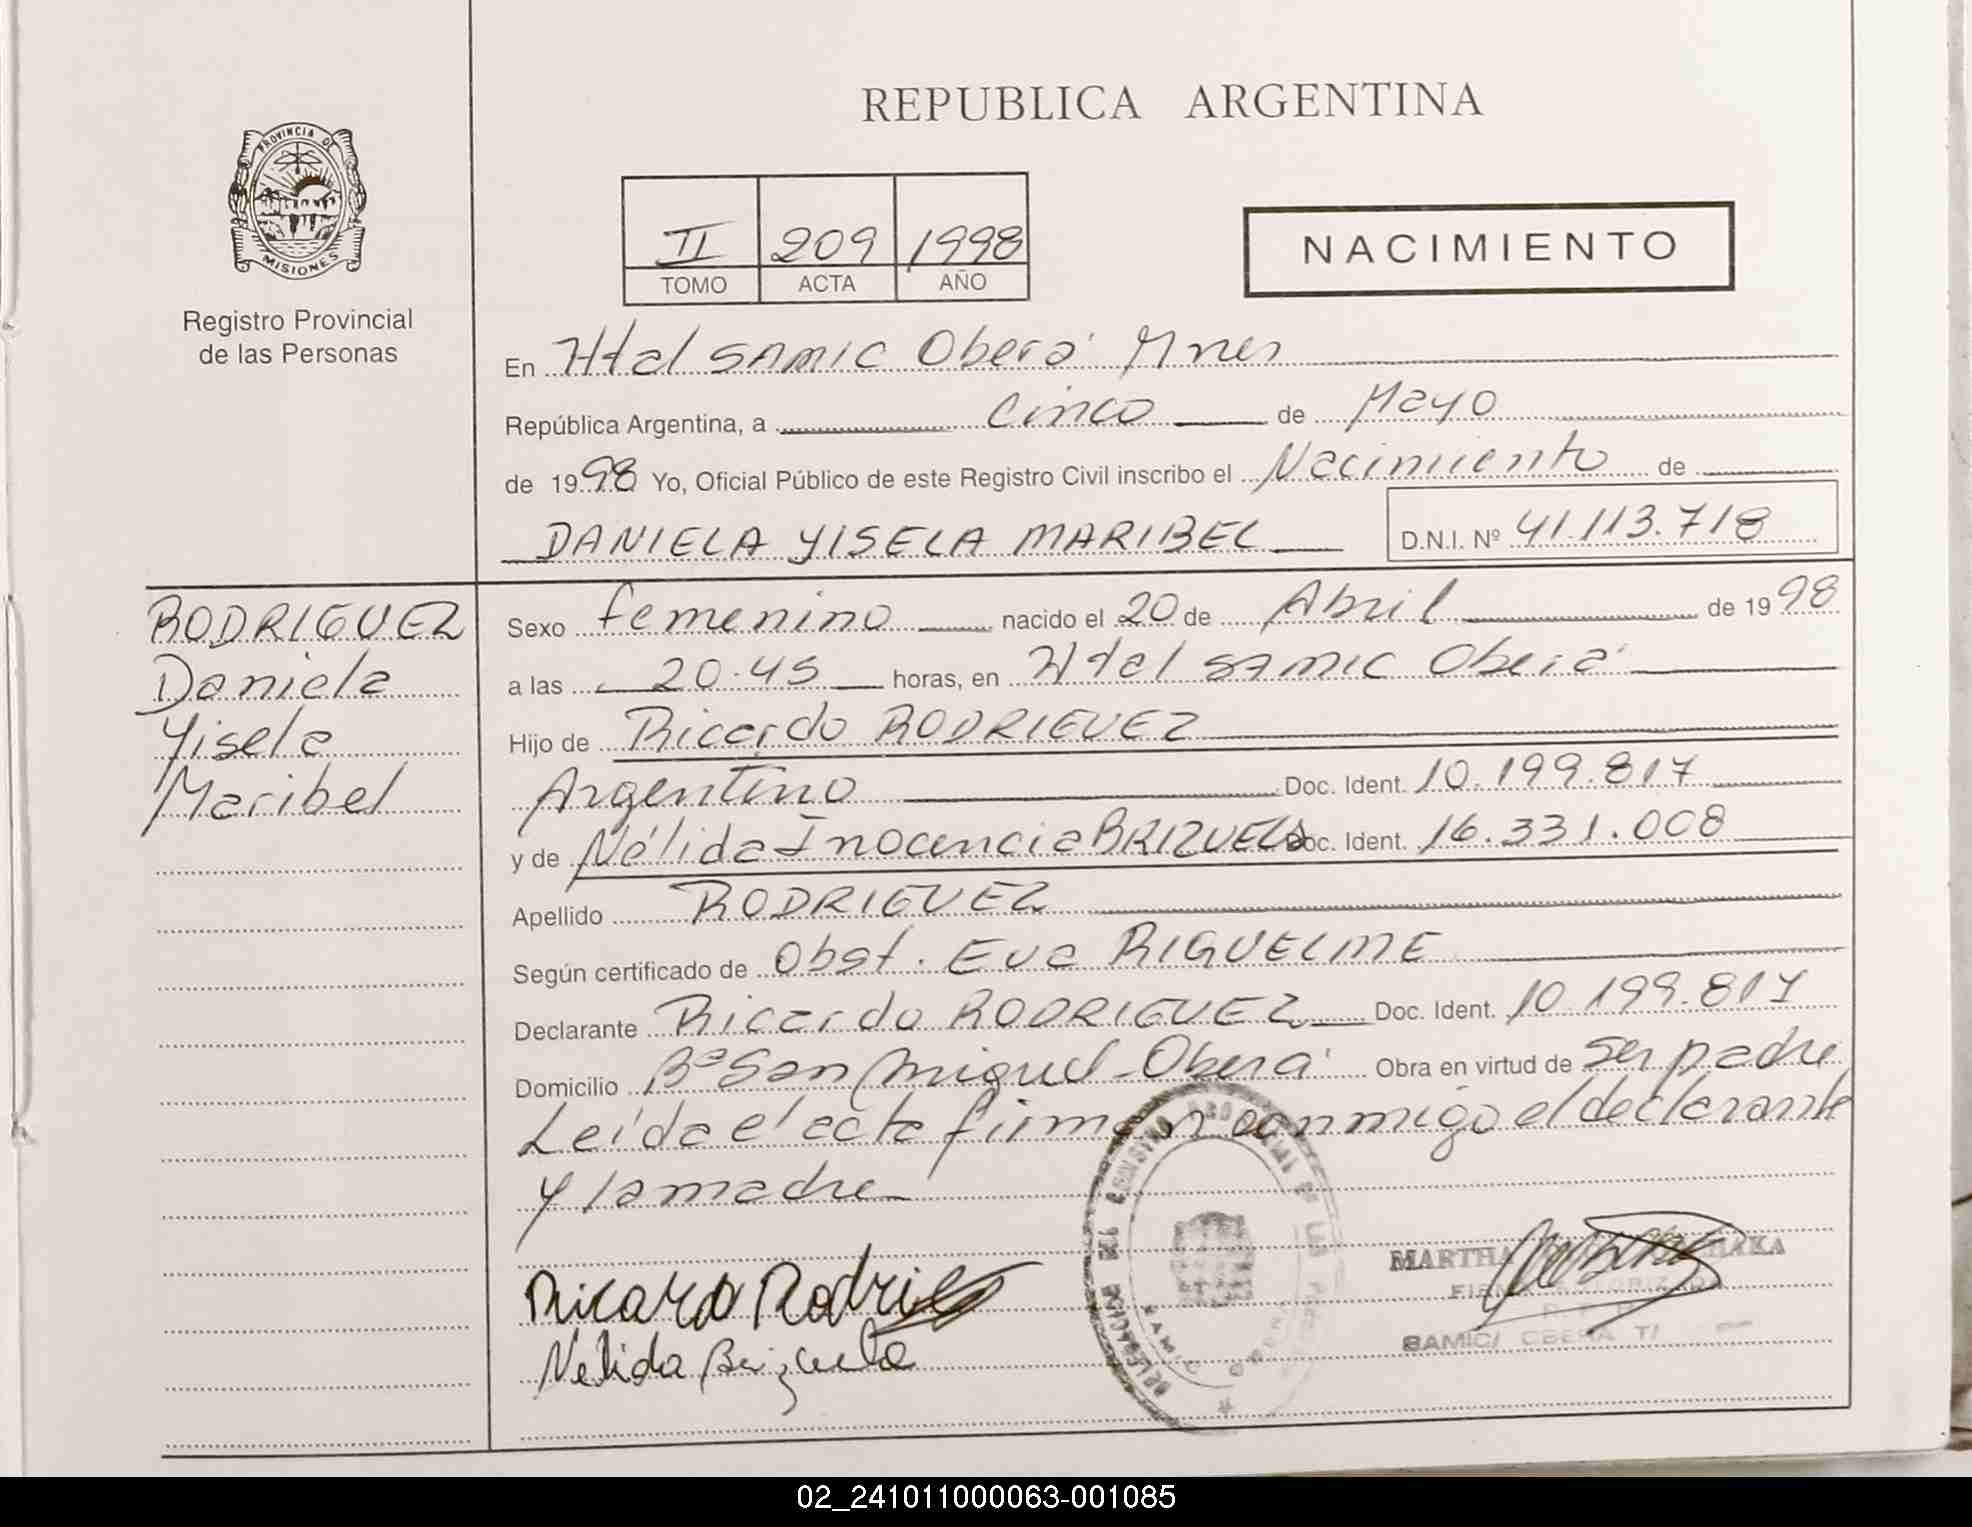 REPUBLICA ARGENTINA
PROVINCIA DE
MISIONES
Registro Provincial
de las Personas
II 209 1998
TOMO ACTA AÑO
NACIMIENTO
En Htal SAMIC Oberá Mnes
República Argentina, a Cinco de Mayo
de 1998 Yo, Oficial Público de este Registro Civil inscribo el Nacimiento de
DANIELA YISELA MARIBEL D.N.I. Nº 41.113.718
RODRIGUEZ
Daniela
Yisela
Maribel
Sexo femenino nacido el 20 de Abril de 1998
a las 20.45 horas, en Htal SAMIC Oberá
Hijo de Ricardo RODRIGUEZ
Argentino Doc. Ident. 10.199.817
y de Nélida Inocencia BRIZUELA Doc. Ident. 16.331.008
Apellido RODRIGUEZ
Según certificado de Obst. Eva RIQUELME
Declarante Ricardo RODRIGUEZ Doc. Ident. 10.199.817
Domicilio Bº San Miguel - Oberá Obra en virtud de ser padre
Leída el acta firman conmigo el declarante
y la madre
Ricardo Rodrig
Nelida Brizuela
MARTHA
SAMIC/ OBERA
02_241011000063-001085